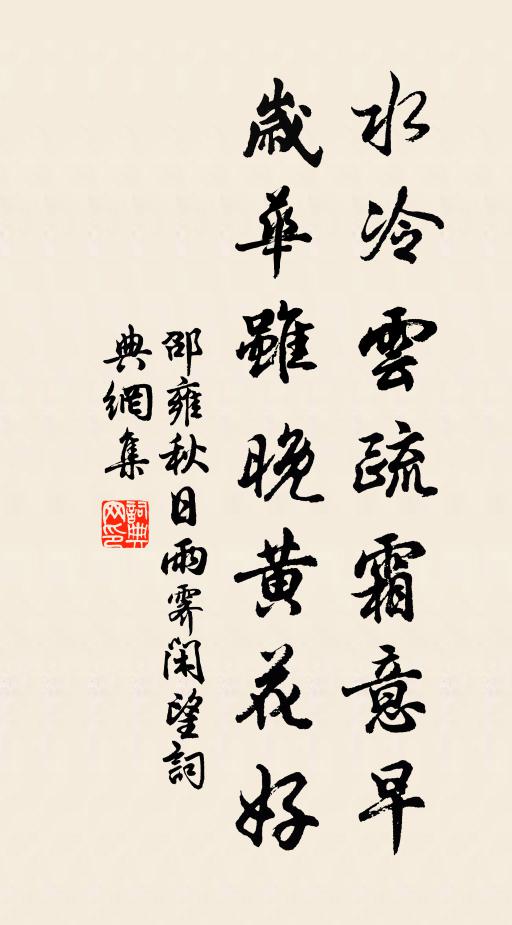 水冷雲疏霜意早
歲華雖晚黃花好
邵雍秋日雨霽閑望詞
典網集
詞典網印